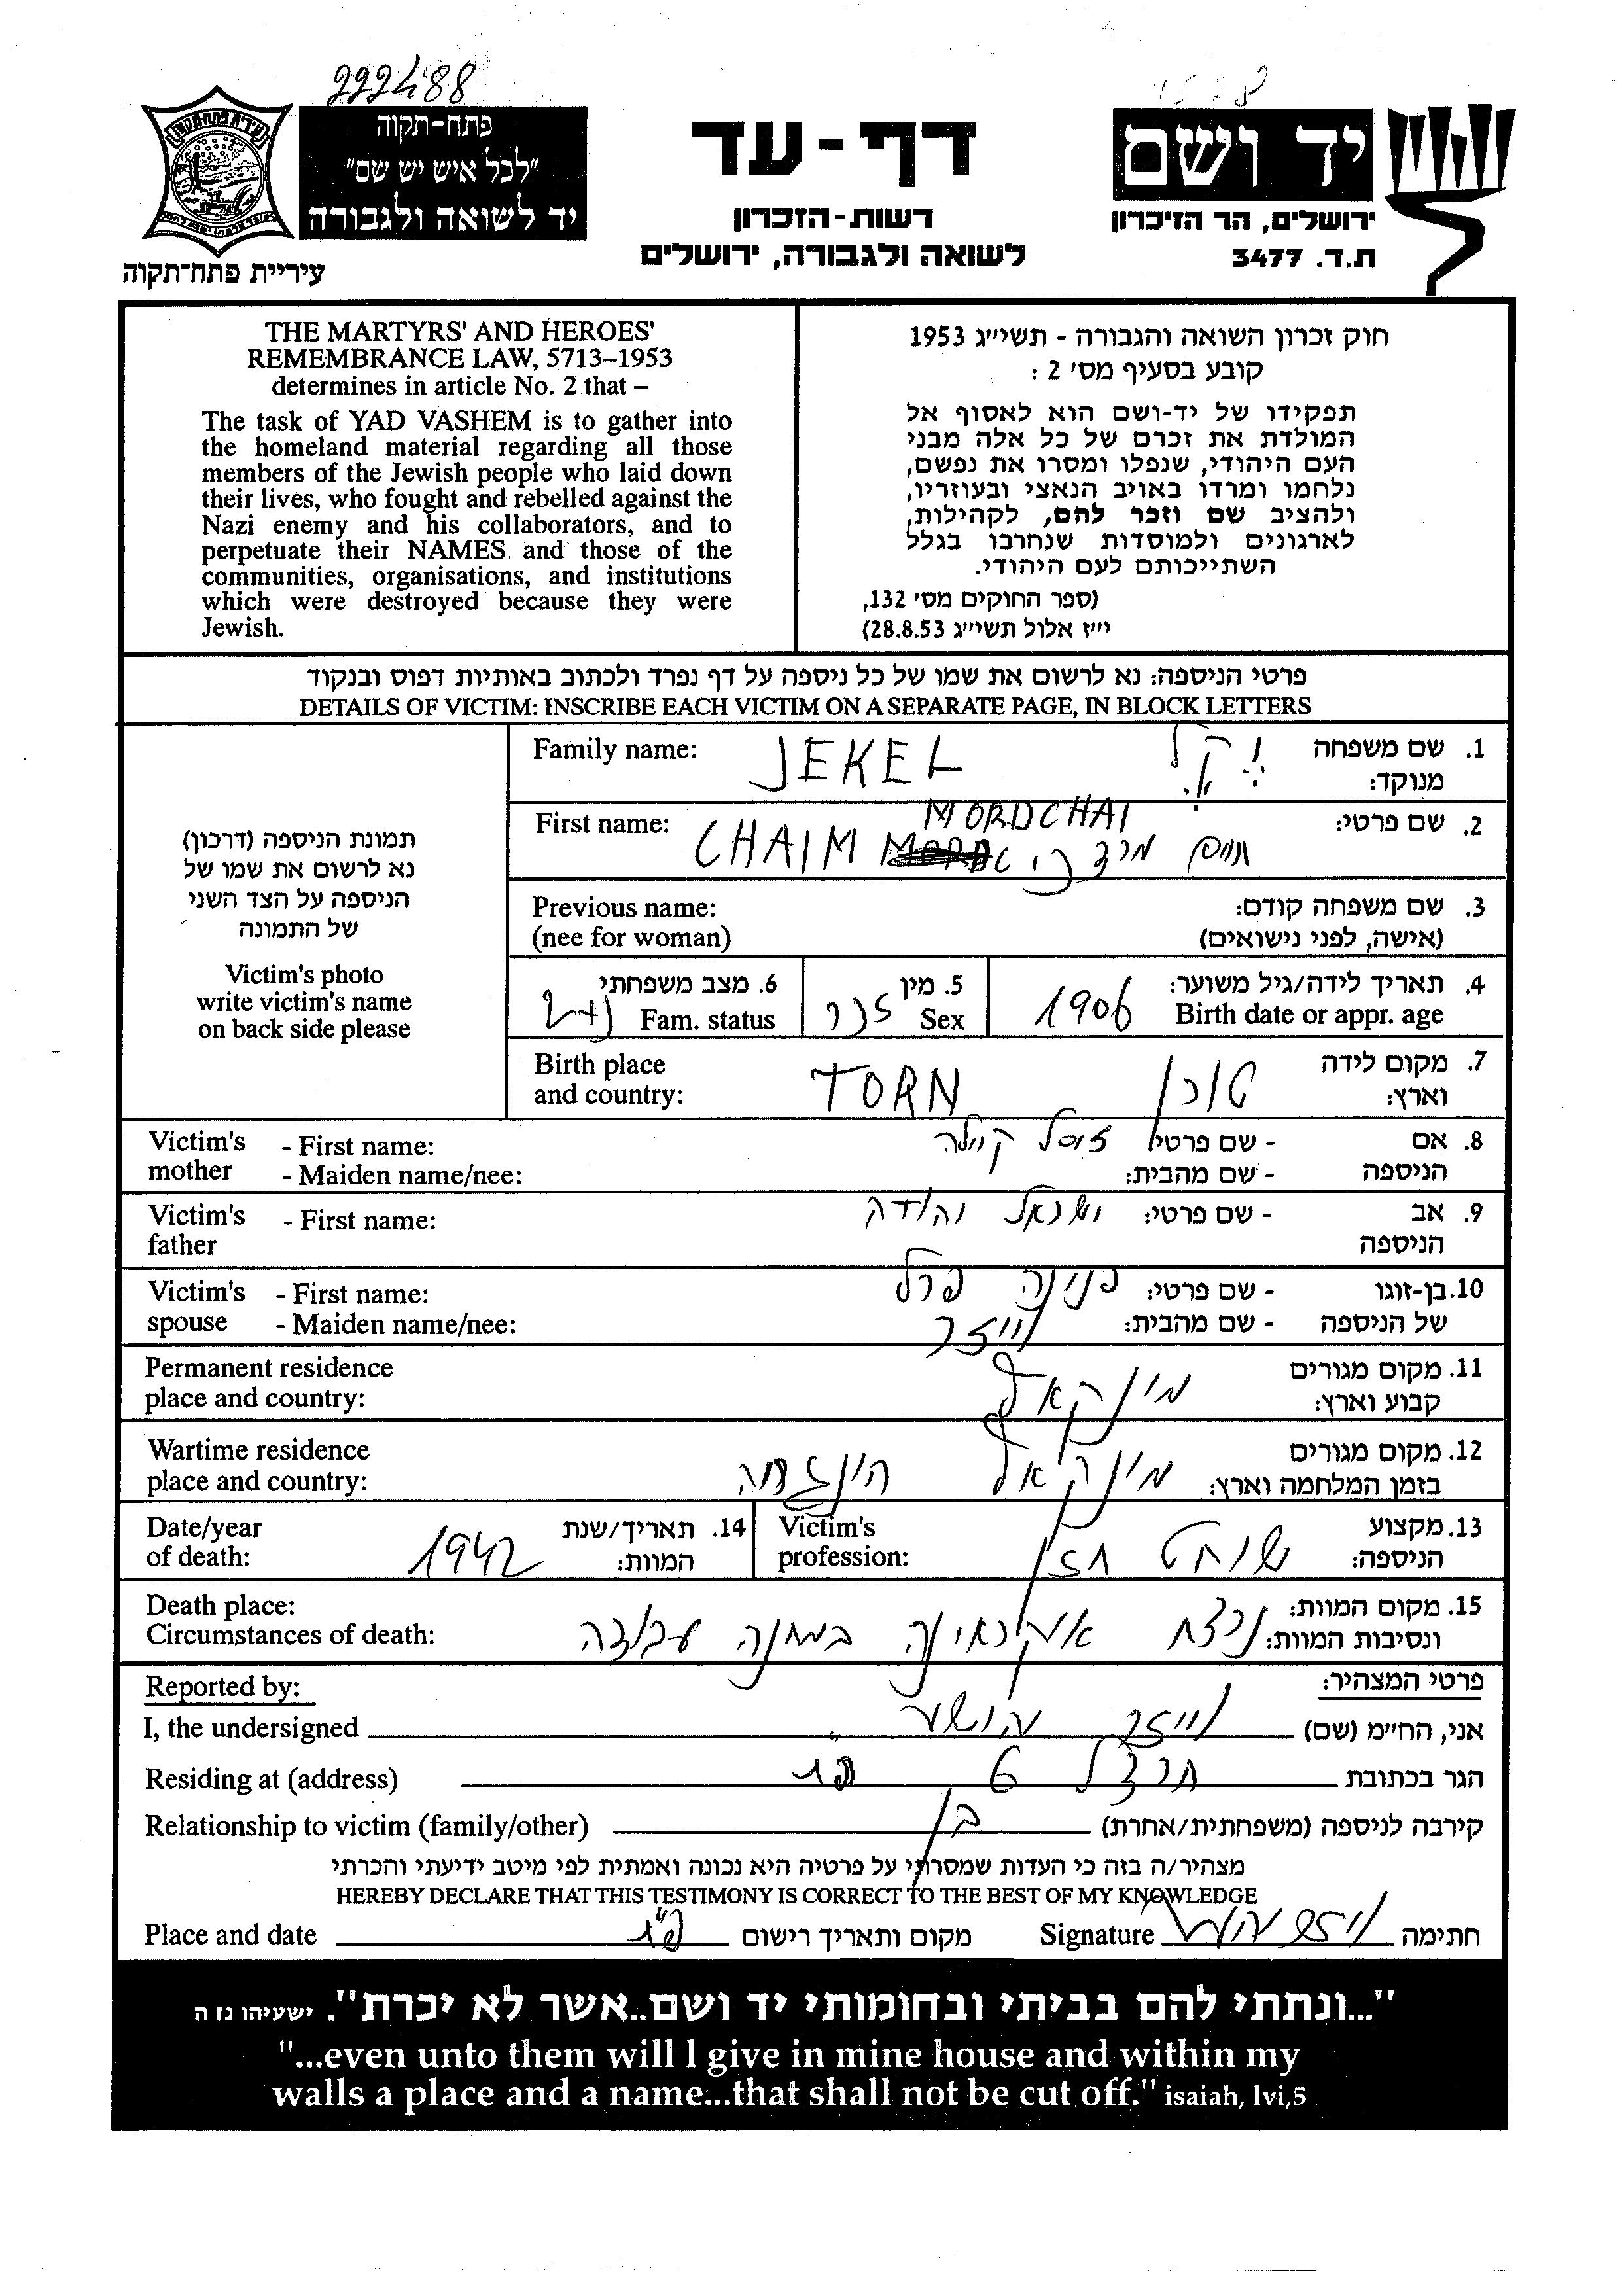 222488
פתח-תקוה
"לכל איש יש שם"
יד לשואה ולגבורה
עיריית פתח-תקוה
דף-עד
רשות-הזכרון
לשואה ולגבורה, ירושלים
יד ושם
ירושלים, הר הזיכרון
ת.ד. 3477
THE MARTYRS' AND HEROES'
REMEMBRANCE LAW, 5713–1953
determines in article No. 2 that –
The task of YAD VASHEM is to gather into
the homeland material regarding all those
members of the Jewish people who laid down
their lives, who fought and rebelled against the
Nazi enemy and his collaborators, and to
perpetuate their NAMES and those of the
communities, organisations, and institutions
which were destroyed because they were
Jewish.
חוק זכרון השואה והגבורה - תשי״ג 1953
קובע בסעיף מס׳ 2 :
תפקידו של יד-ושם הוא לאסוף אל
המולדת את זכרם של כל אלה מבני
העם היהודי, שנפלו ומסרו את נפשם,
נלחמו ומרדו באויב הנאצי ובעוזריו,
ולהציב שם וזכר להם, לקהילות,
לארגונים ולמוסדות שנחרבו בגלל
השתייכותם לעם היהודי.
(ספר החוקים מס׳ 132,
י״ז אלול תשי״ג 28.8.53)
פרטי הניספה: נא לרשום את שמו של כל ניספה על דף נפרד ולכתוב באותיות דפוס ובנקוד
DETAILS OF VICTIM: INSCRIBE EACH VICTIM ON A SEPARATE PAGE, IN BLOCK LETTERS
תמונת הניספה (דרכון)
נא לרשום את שמו של
הניספה על הצד השני
של התמונה
Victim's photo
write victim's name
on back side please
Family name: JEKEL
1. שם משפחה
מנוקד:
MORDCHAI
First name: CHAIM חיים מרדכי 2. שם פרטי:
Previous name: 3. שם משפחה קודם:
(nee for woman) (אישה, לפני נישואים)
4. תאריך לידה/גיל משוער: 1906
Birth date or appr. age
5. מין זכר
Sex
6. מצב משפחתי נשוי
Fam. status
Birth place 7. מקום לידה
and country: TORN טורן וארץ:
Victim's - First name: זיסל קיילה - שם פרטי 8. אם
mother - Maiden name/nee: - שם מהבית: הניספה
Victim's - First name: ישראל יהודה - שם פרטי: 9. אב
father הניספה
Victim's - First name: פנינה פרל - שם פרטי: 10. בן-זוגו
spouse - Maiden name/nee: וייזר - שם מהבית: של הניספה
Permanent residence 11. מקום מגורים
place and country: קבוע וארץ:
Wartime residence 12. מקום מגורים
place and country: בזמן המלחמה וארץ:
13. מקצוע
הניספה: שוחט
Victim's
profession:
14. תאריך/שנת
המוות: 1942
Date/year
of death:
Death place: 15. מקום המוות:
Circumstances of death: נרצח אוקראינה במחנה עבודה ונסיבות המוות:
Reported by: פרטי המצהיר:
I, the undersigned וייזר יהושע אני, החי״מ (שם)
Residing at (address) הרצל 6 פ״ת הגר בכתובת
Relationship to victim (family/other) בן קירבה לניספה (משפחתית/אחרת)
מצהיר/ה בזה כי העדות שמסרתי על פרטיה היא נכונה ואמתית לפי מיטב ידיעתי והכרתי
HEREBY DECLARE THAT THIS TESTIMONY IS CORRECT TO THE BEST OF MY KNOWLEDGE
Place and date פ״ת מקום ותאריך רישום Signature חתימה
"...ונתתי להם בביתי ובחומותי יד ושם..אשר לא יכרת". ישעיהו נז ה
"...even unto them will I give in mine house and within my
walls a place and a name...that shall not be cut off." isaiah, lvi,5